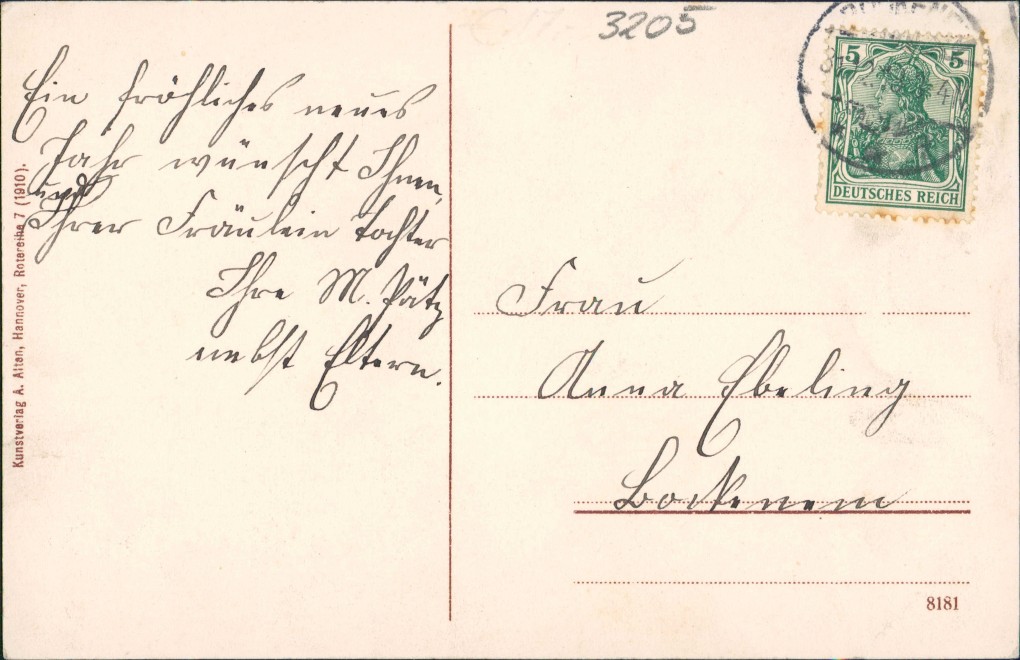 3205
Ein fröhliches neues
Jahr wünscht Ihnen,
und
Ihrer Fräulein Tochter
Ihre M. Pätz
nebst Eltern.
5 5
DEUTSCHES REICH
Frau
Anna Ebeling
Bockenem
8181
Kunstverlag A. Alten, Hannover, Rotereihe 7 (1910).